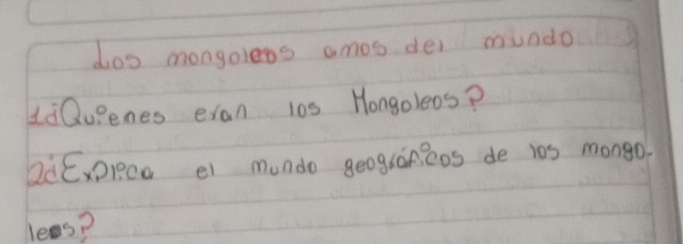 Los mongoleos amos del mundo
1¿Quienes eran los Mongoleos?
2¿Explica el mundo geograficos de los mongo-
leos?